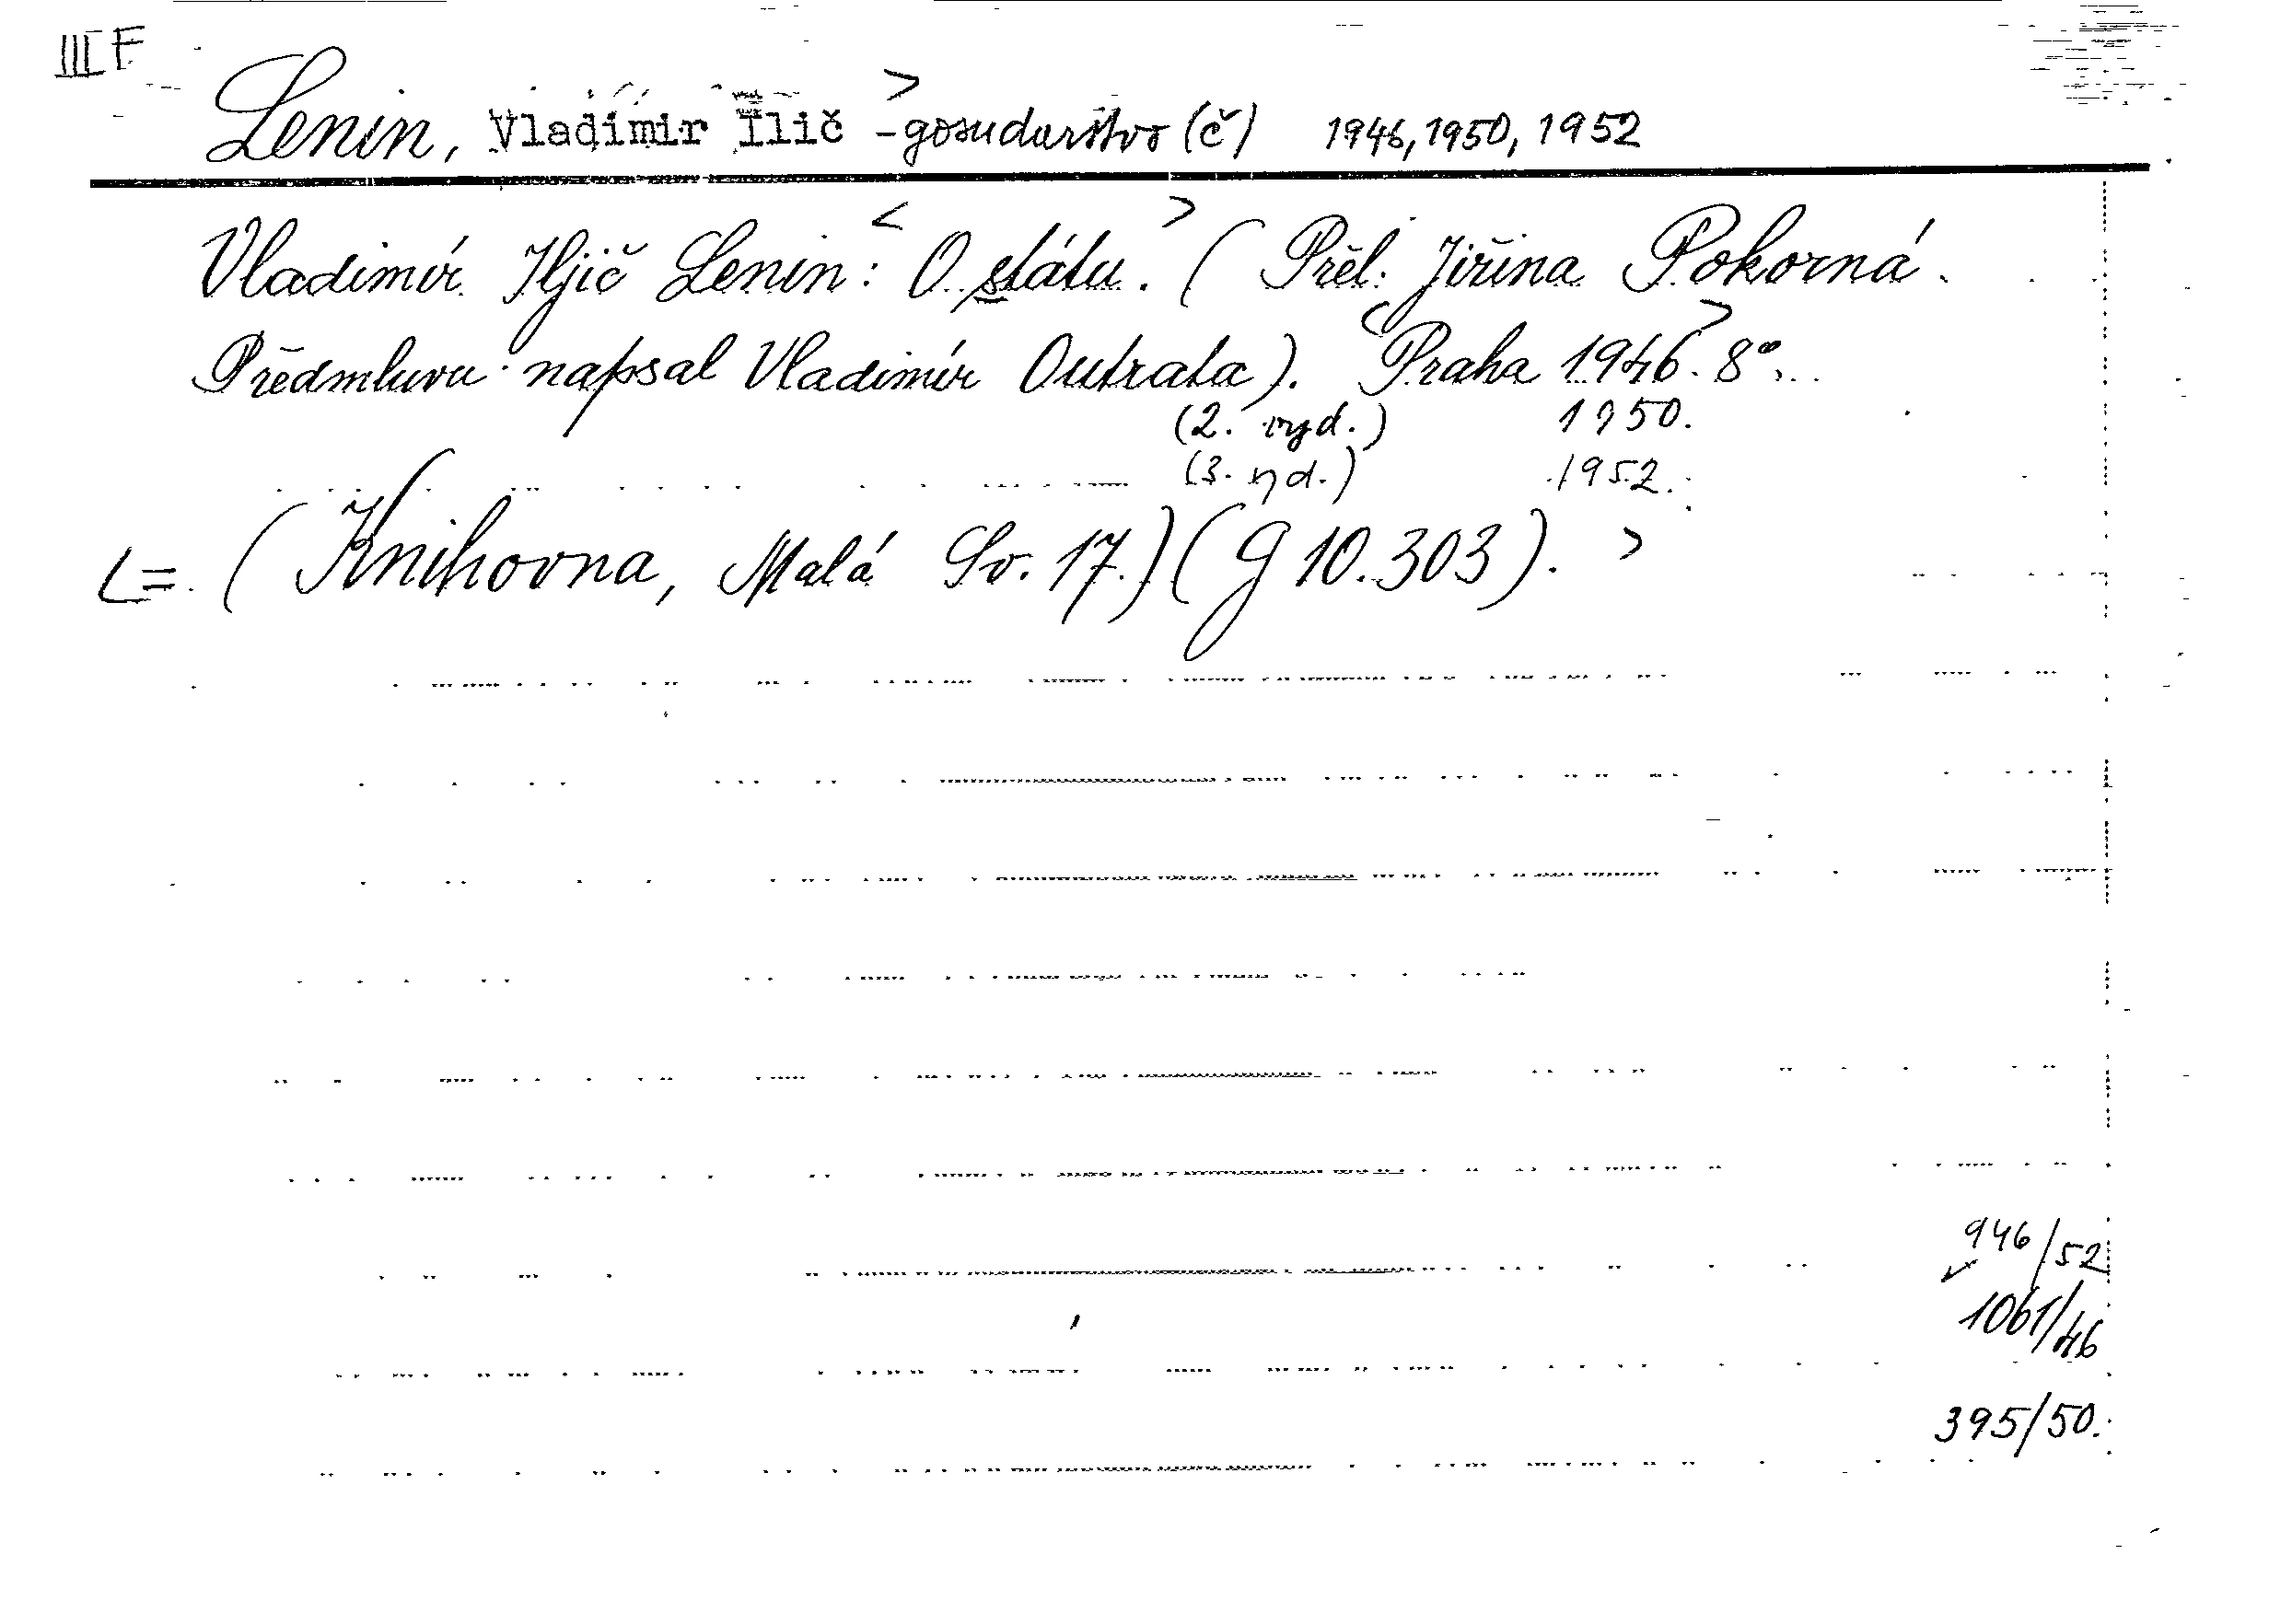 III F
Lenin, Vladimir Ilič - gosudarstvo (č) 1946, 1950, 1952
Vladimír Iljič Lenin: O státu. (Přel. Jiřina Pokorná.
Předmluvu napsal Vladimír Outrata). Praha 1946. 8°.
(2. vyd.) 1950.
(3. vyd.) 1952.
(Knihovna, Malá Sv. 17.) (G 10.303).
946/52
1061/46
395/50.